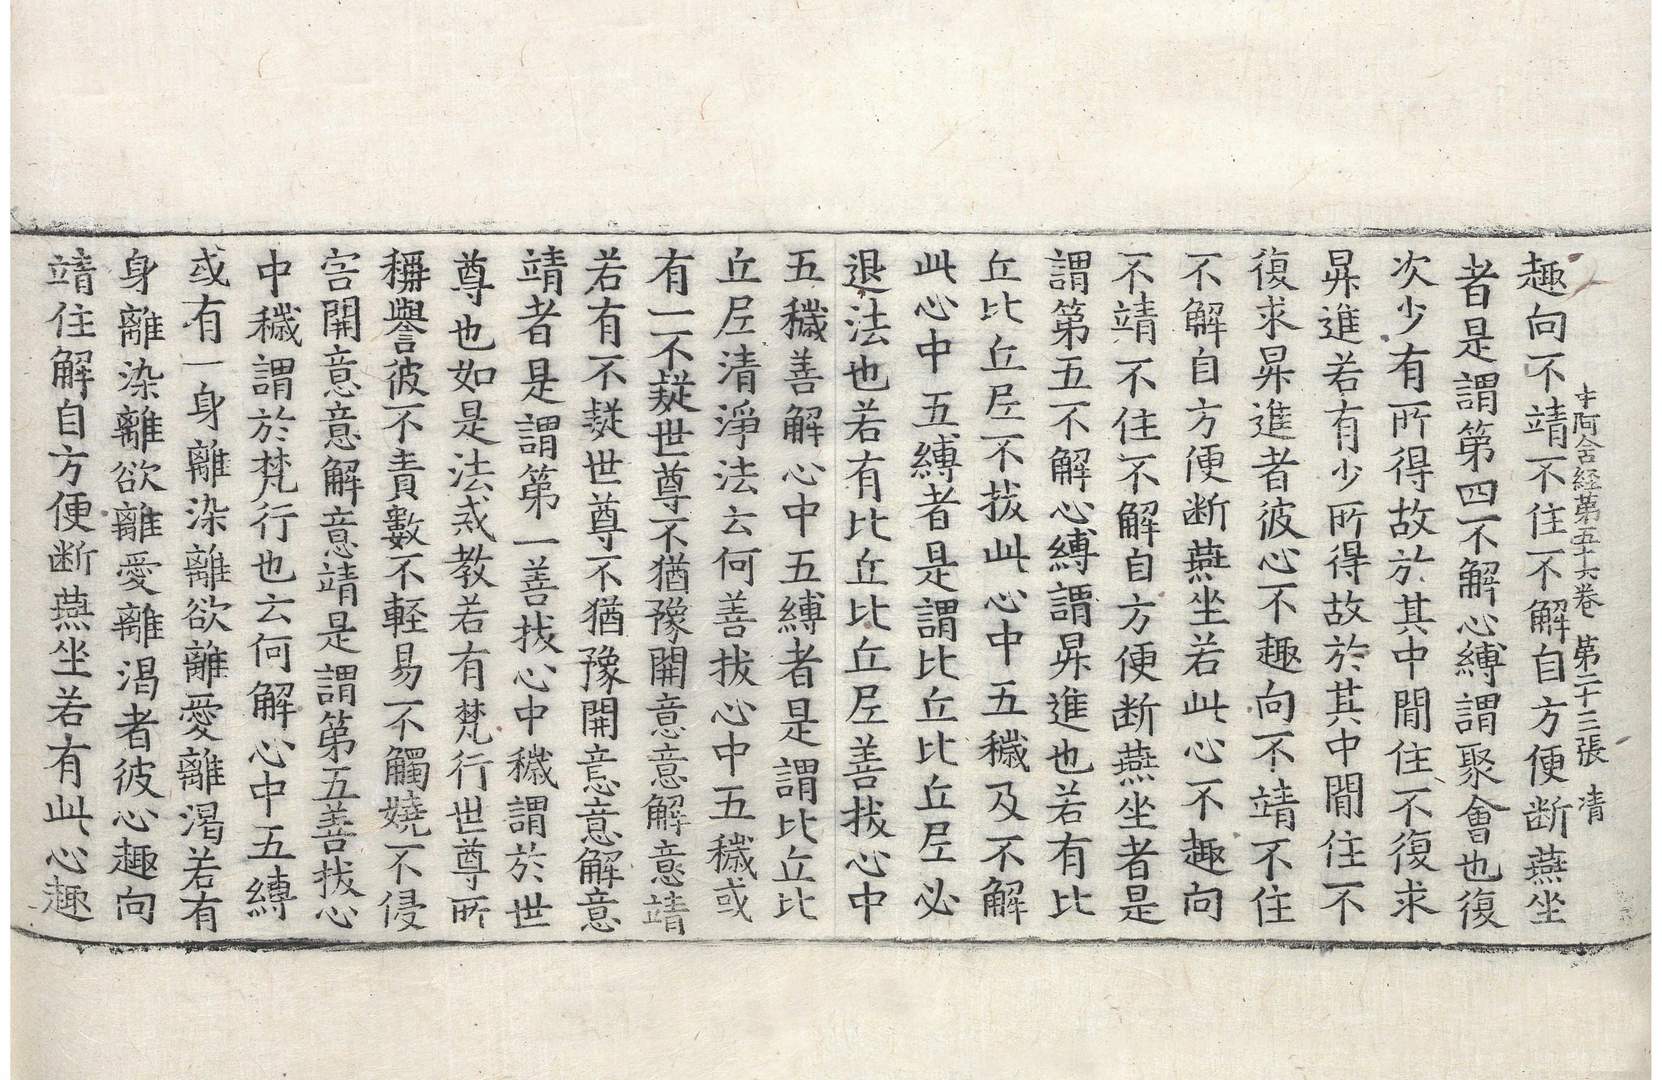 中阿含経苐五十六卷　苐二十三張　清
趣向不靖不住不解自方便断燕坐
者是謂第四不解心縛謂聚會也復
次少有所得故於其中間住不復求
昇進若有少所得故於其中間住不
復求昇進者彼心不趣向不靖不住
不解自方便断燕坐若此心不趣向
不靖不住不解自方便断燕坐者是
謂第五不解心縛謂昇進也若有比
丘比丘尼不拔此心中五穢及不解
此心中五縛者是謂比丘比丘尼必
退法也若有比丘比丘尼善拔心中
五穢善解心中五縛者是謂比丘比
丘尼清淨法云何善拔心中五穢或
有一不疑世尊不猶豫開意意解意靖
若有不疑世尊不猶豫開意意解意
靖者是謂第一善拔心中穢謂於世
尊也如是法戒教若有梵行世尊所
稱譽彼不責數不軽易不觸嬈不侵
害開意意解意靖是謂第五善拔心
中穢謂於梵行也云何解心中五縛
或有一身離染離欲離愛離渴若有
身離染離欲離愛離渴者彼心趣向
靖住解自方便断燕坐若有此心趣